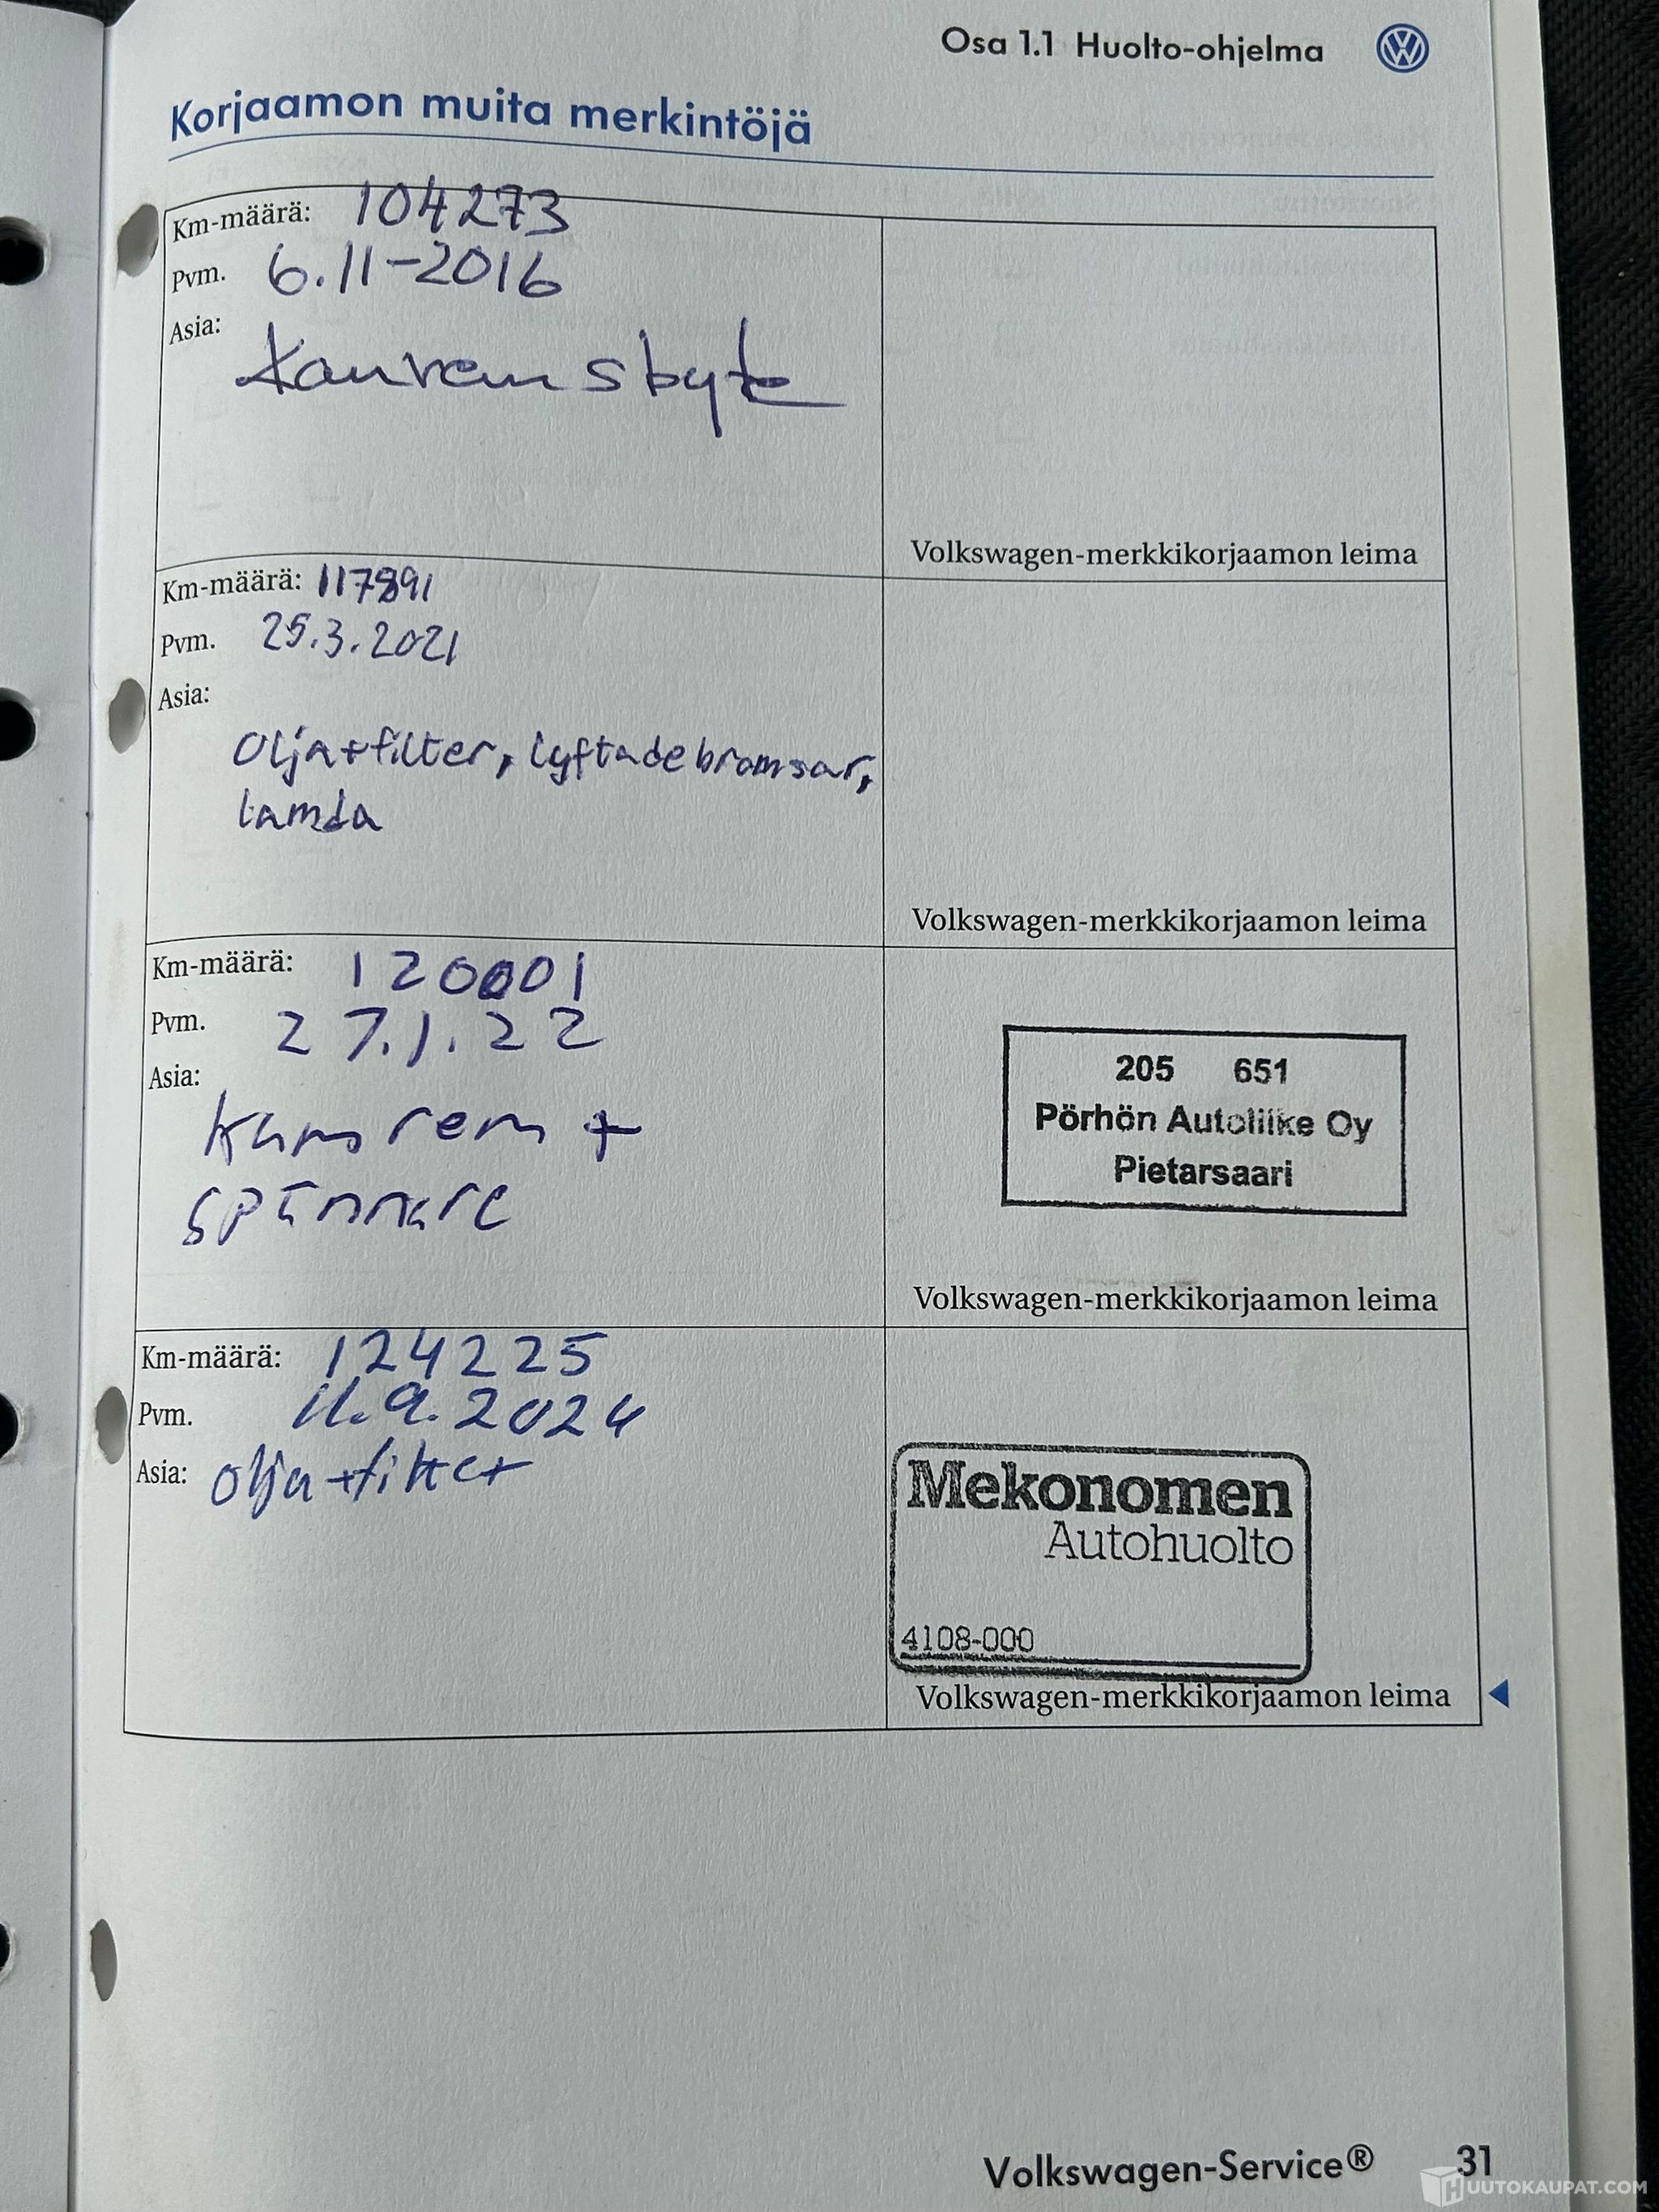 Osa 1.1 Huolto-ohjelma
Korjaamon muita merkintöjä
Km-määrä: 104273
Pvm. 6.11-2016
Asia:
Kamremsbyte
Volkswagen-merkkikorjaamon leima
Km-määrä: 117891
Pvm. 25.3.2021
Asia:
Olja+filter, lyftade bromsar,
lamda
Volkswagen-merkkikorjaamon leima
Km-määrä: 120001
Pvm. 27.1.22
Asia:
Kamrem +
spännare
205 651
Pörhön Autoliike Oy
Pietarsaari
Volkswagen-merkkikorjaamon leima
Km-määrä: 124225
Pvm. 11.9.2024
Asia: Olja+filter
Mekonomen
Autohuolto
4108-000
Volkswagen-merkkikorjaamon leima
Volkswagen-Service® 31
HUUTOKAUPAT.COM